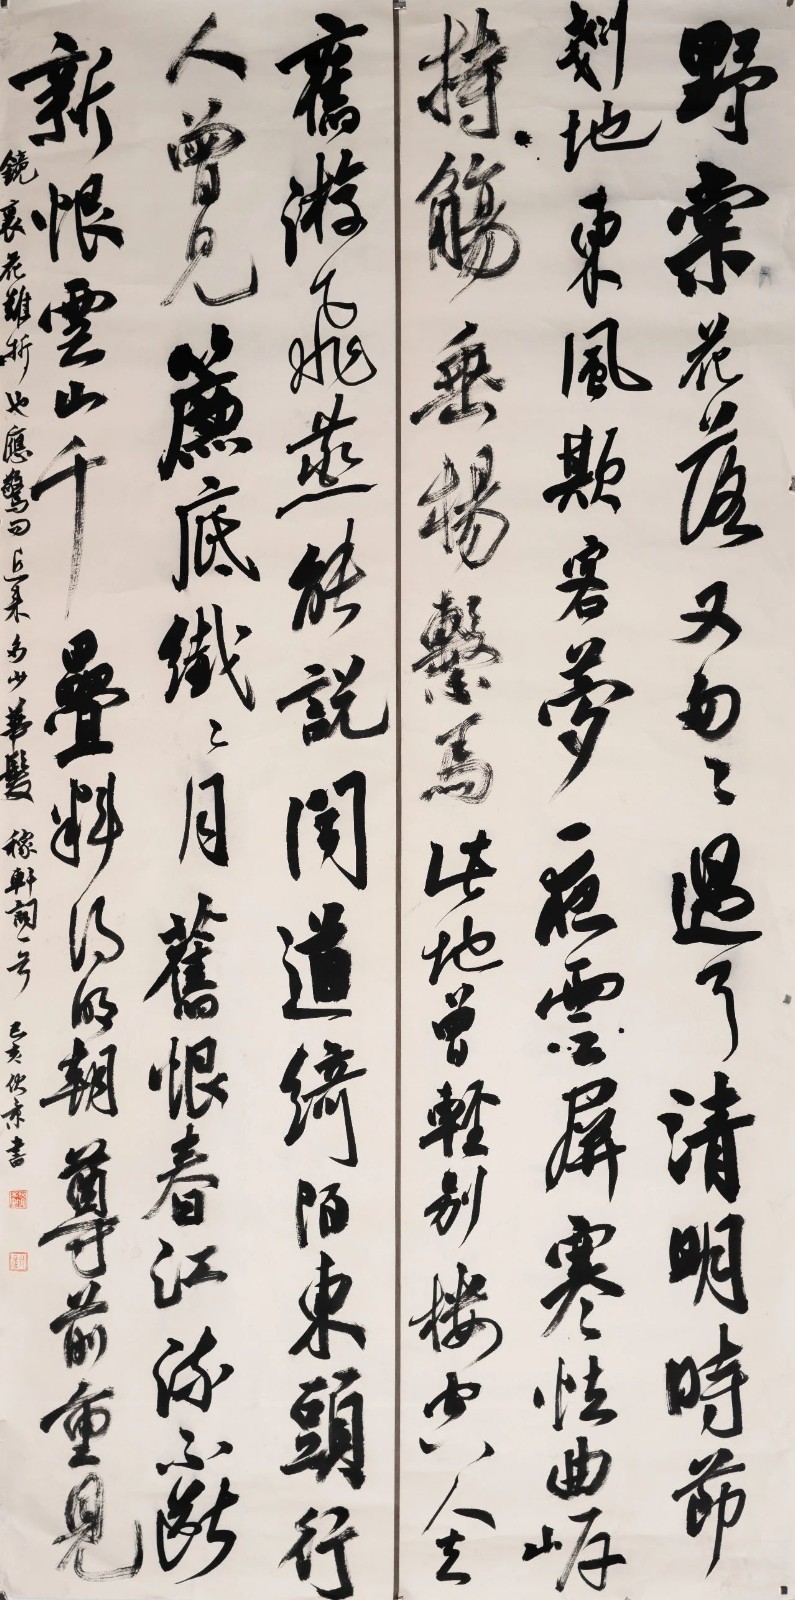 野棠花落又匆々過了清明時節
剗地東風欺客夢一夜雲屏寒怯曲岸
持觴垂楊繫馬此地曾輕別樓空人去
舊游飛燕能說聞道綺陌東頭行
人曾見簾底纖々月舊恨春江流不斷
新恨雲山千疊料得明朝尊前重見
鏡裏花難折也應驚問近來多少華髮 稼軒詞一首 己亥 書